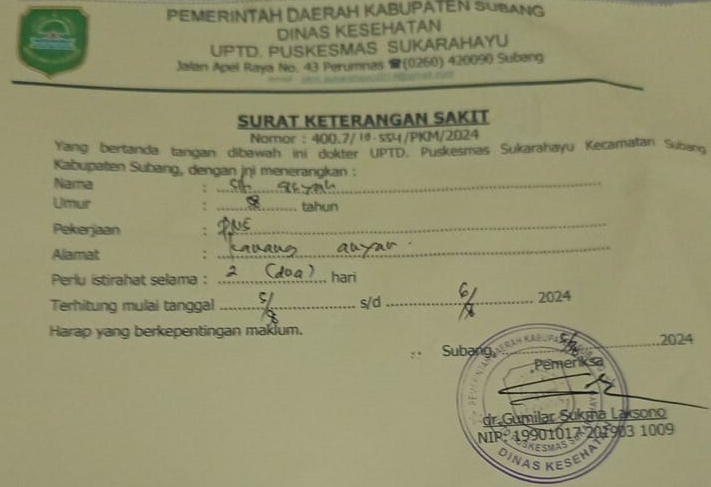 PEMERINTAH DAERAH KABUPATEN SUBANG
DINAS KESEHATAN
UPTD. PUSKESMAS SUKARAHAYU
Jalan Apel Raya No. 43 Perumnas ☎(0260) 420090 Subang
SURAT KETERANGAN SAKIT
Nomor : 400.7/18.554/PKM/2024
Yang bertanda tangan dibawah ini dokter UPTD. Puskesmas Sukarahayu Kecamatan Subang
Kabupaten Subang, dengan jni menerangkan :
Nama : Siti
Umur : 8 tahun
Pekerjaan : PNS
Alamat : Karang anyar.
Perlu istirahat selama : 2 (dua) hari
Terhitung mulai tanggal 5/8 s/d 6/8 2024
Harap yang berkepentingan maklum.
Subang, 5/8 2024
Pemeriksa
dr.Gumilar Sukma Laksono
NIP: 19901017 201903 1009
DINAS KESEHATAN